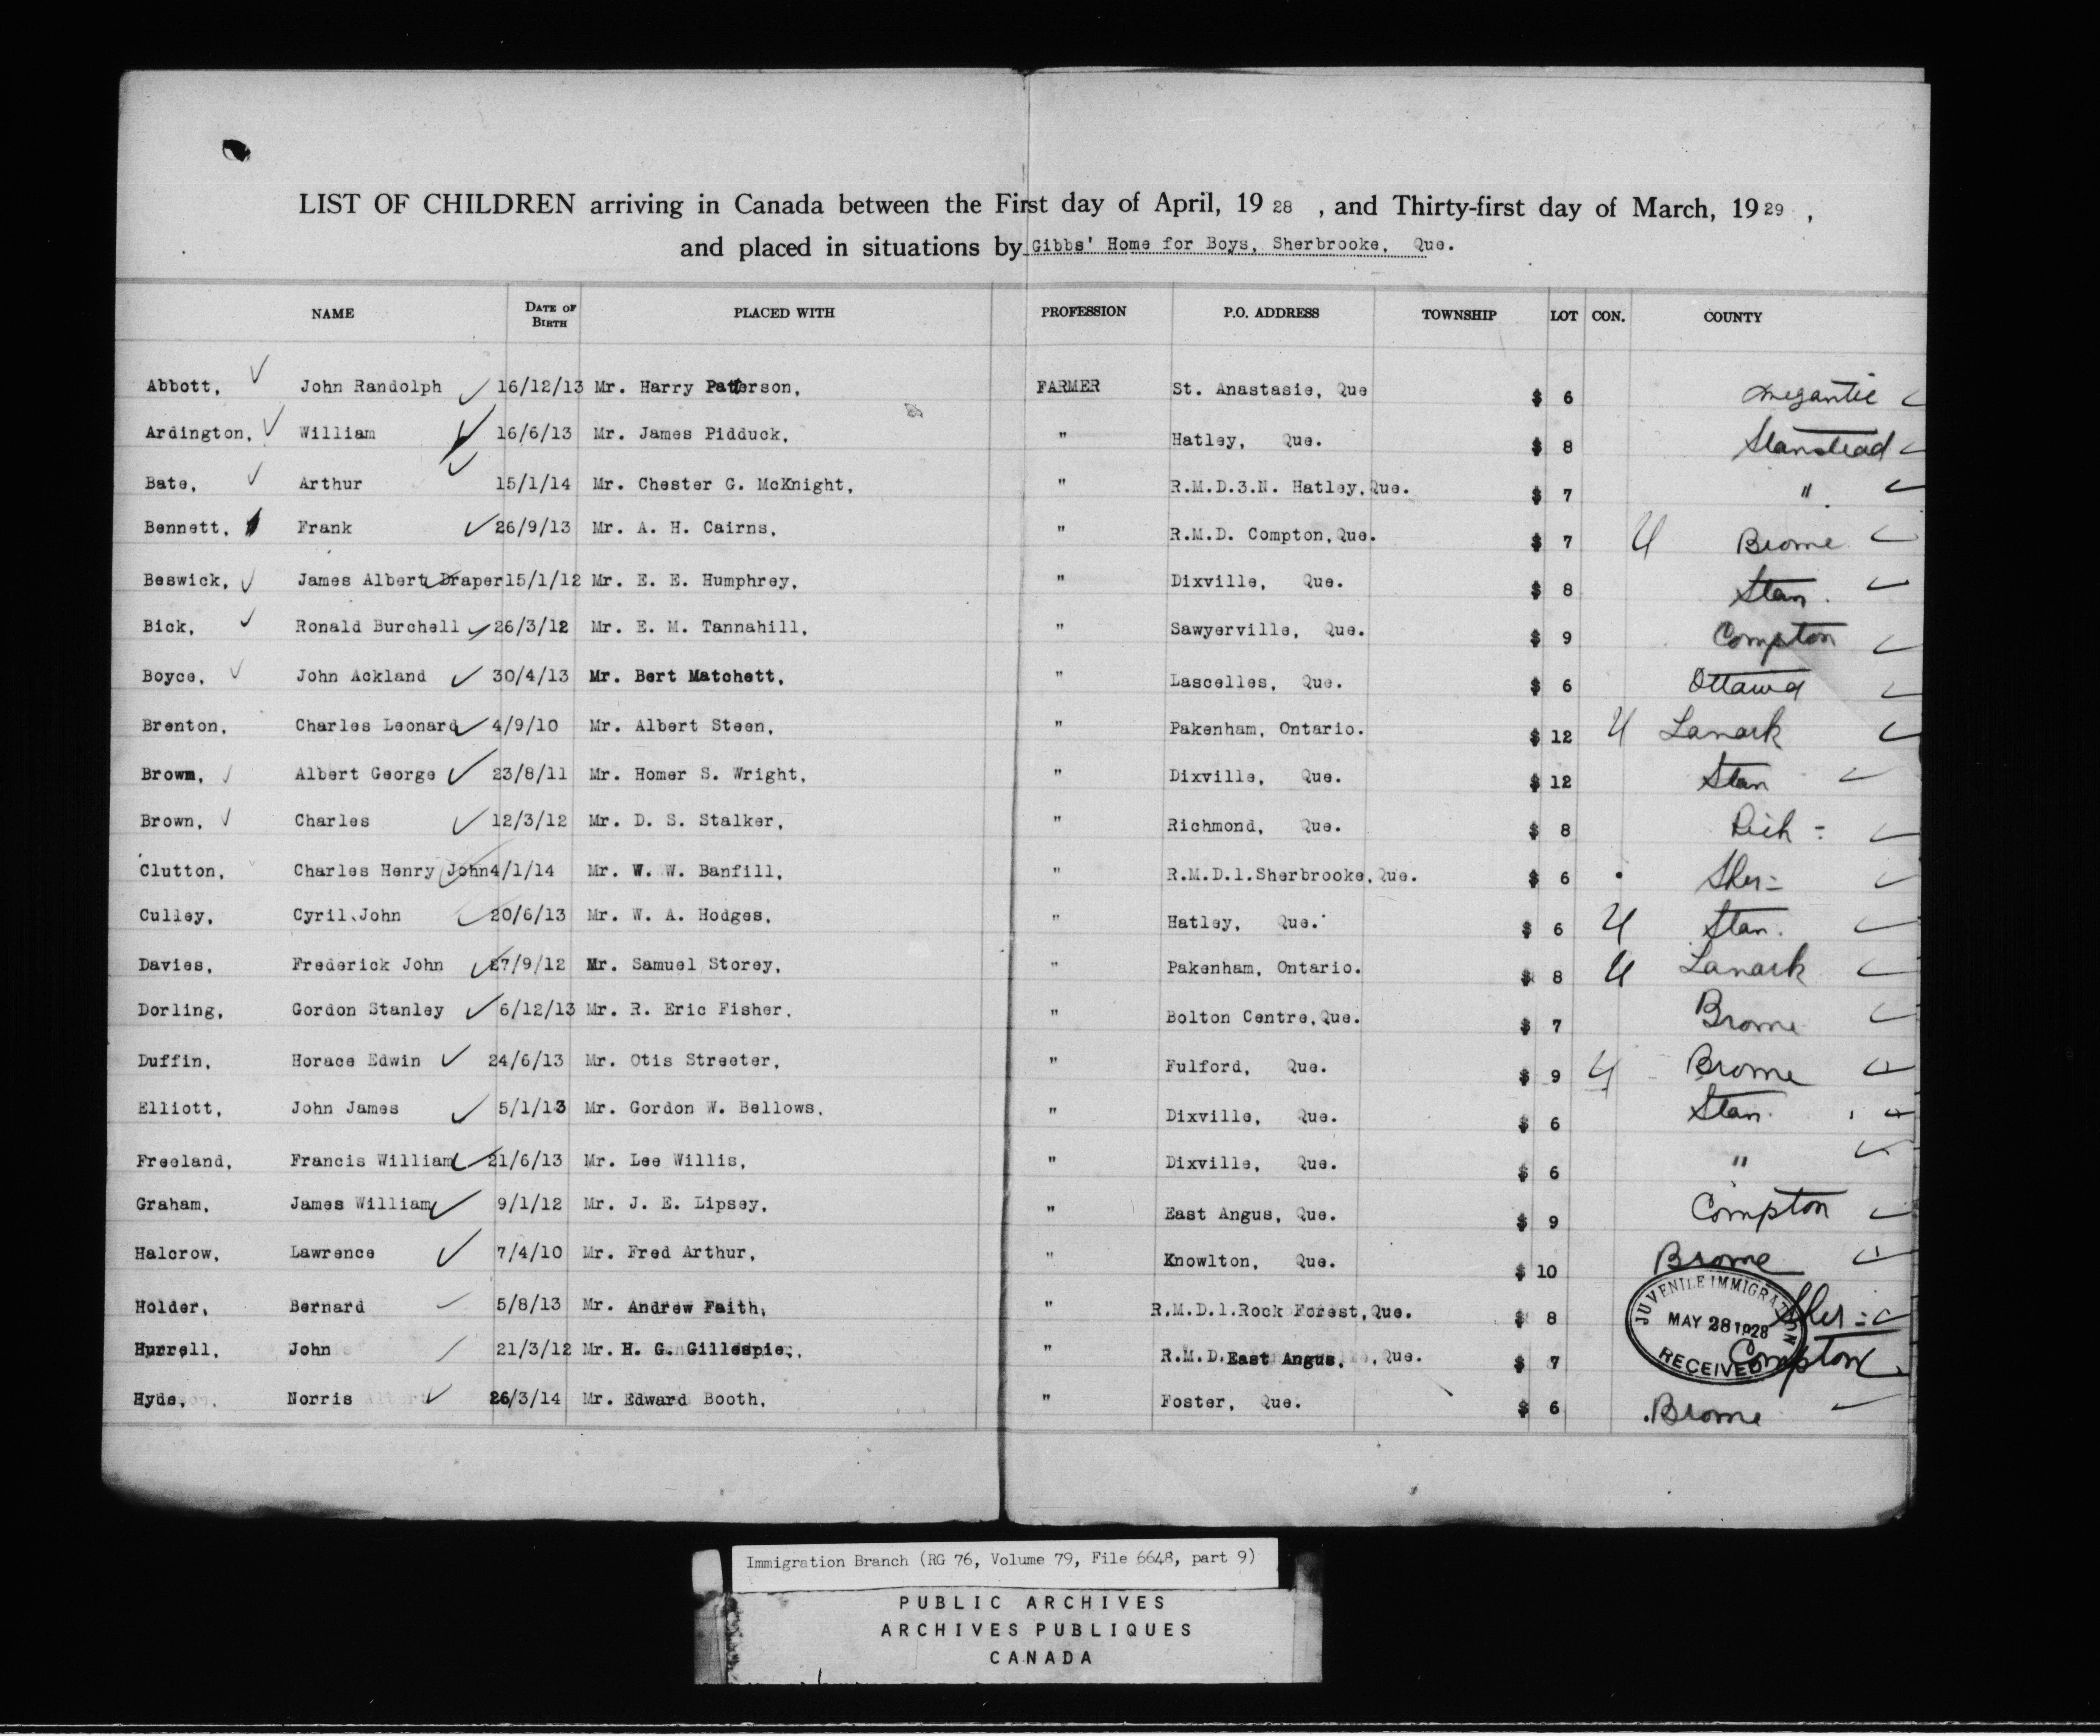 LIST OF CHILDREN arriving in Canada between the First day of April, 19 28 , and Thirty-first day of March, 19 29 ,
and placed in situations by Gibbs' Home for Boys, Sherbrooke, Que.
NAME DATE OF BIRTH PLACED WITH PROFESSION P.O. ADDRESS TOWNSHIP LOT CON. COUNTY
Abbott, John Randolph 16/12/13 Mr. Harry Patterson, FARMER St. Anastasie, Que $ 6 Megantic
Ardington, William 16/6/13 Mr. James Pidduck, " Hatley, Que. $ 8 Stanstead
Bate, Arthur 15/1/14 Mr. Chester G. McKnight, " R.M.D.3.N. Hatley,Que. $ 7 "
Bennett, Frank 26/9/13 Mr. A. H. Cairns, " R.M.D. Compton,Que. $ 7 U Brome
Beswick, James Albert Draper 15/1/12 Mr. E. E. Humphrey, " Dixville, Que. $ 8 Stan.
Bick, Ronald Burchell 26/3/12 Mr. E. M. Tannahill, " Sawyerville, Que. $ 9 Compton
Boyce, John Ackland 30/4/13 Mr. Bert Matchett, " Lascelles, Que. $ 6 Ottawa
Brenton, Charles Leonard 4/9/10 Mr. Albert Steen, " Pakenham, Ontario. $ 12 U Lanark
Brown, Albert George 23/8/11 Mr. Homer S. Wright, " Dixville, Que. $ 12 Stan
Brown, Charles 12/3/12 Mr. D. S. Stalker, " Richmond, Que. $ 8 Rich =
Clutton, Charles Henry John 4/1/14 Mr. W. W. Banfill, " R.M.D.1.Sherbrooke,Que. $ 6 Sher =
Culley, Cyril John 20/6/13 Mr. W. A. Hodges, " Hatley, Que. $ 6 U Stan.
Davies, Frederick John 27/9/12 Mr. Samuel Storey, " Pakenham, Ontario. $ 8 U Lanark
Dorling, Gordon Stanley 6/12/13 Mr. R. Eric Fisher, " Bolton Centre,Que. $ 7 Brome
Duffin, Horace Edwin 24/6/13 Mr. Otis Streeter, " Fulford, Que. $ 9 U Brome
Elliott, John James 5/1/13 Mr. Gordon W. Bellows, " Dixville, Que. $ 6 Stan.
Freeland, Francis William 21/6/13 Mr. Lee Willis, " Dixville, Que. $ 6 "
Graham, James William 9/1/12 Mr. J. E. Lipsey, " East Angus, Que. $ 9 Compton
Halcrow, Lawrence 7/4/10 Mr. Fred Arthur, " Knowlton, Que. $ 10 Brome
Holder, Bernard 5/8/13 Mr. Andrew Faith, " R.M.D.1.Rock Forest,Que. $ 8 Sher =
Hurrell, John 21/3/12 Mr. H. G. Gillespie, " R.M.D.East Angus, Que. $ 7 Compton
Hyde, Norris 26/3/14 Mr. Edward Booth, " Foster, Que. $ 6 Brome
JUVENILE IMMIGRATION
MAY 28 1928
RECEIVED
Immigration Branch (RG 76, Volume 79, File 6648, part 9)
PUBLIC ARCHIVES
ARCHIVES PUBLIQUES
CANADA